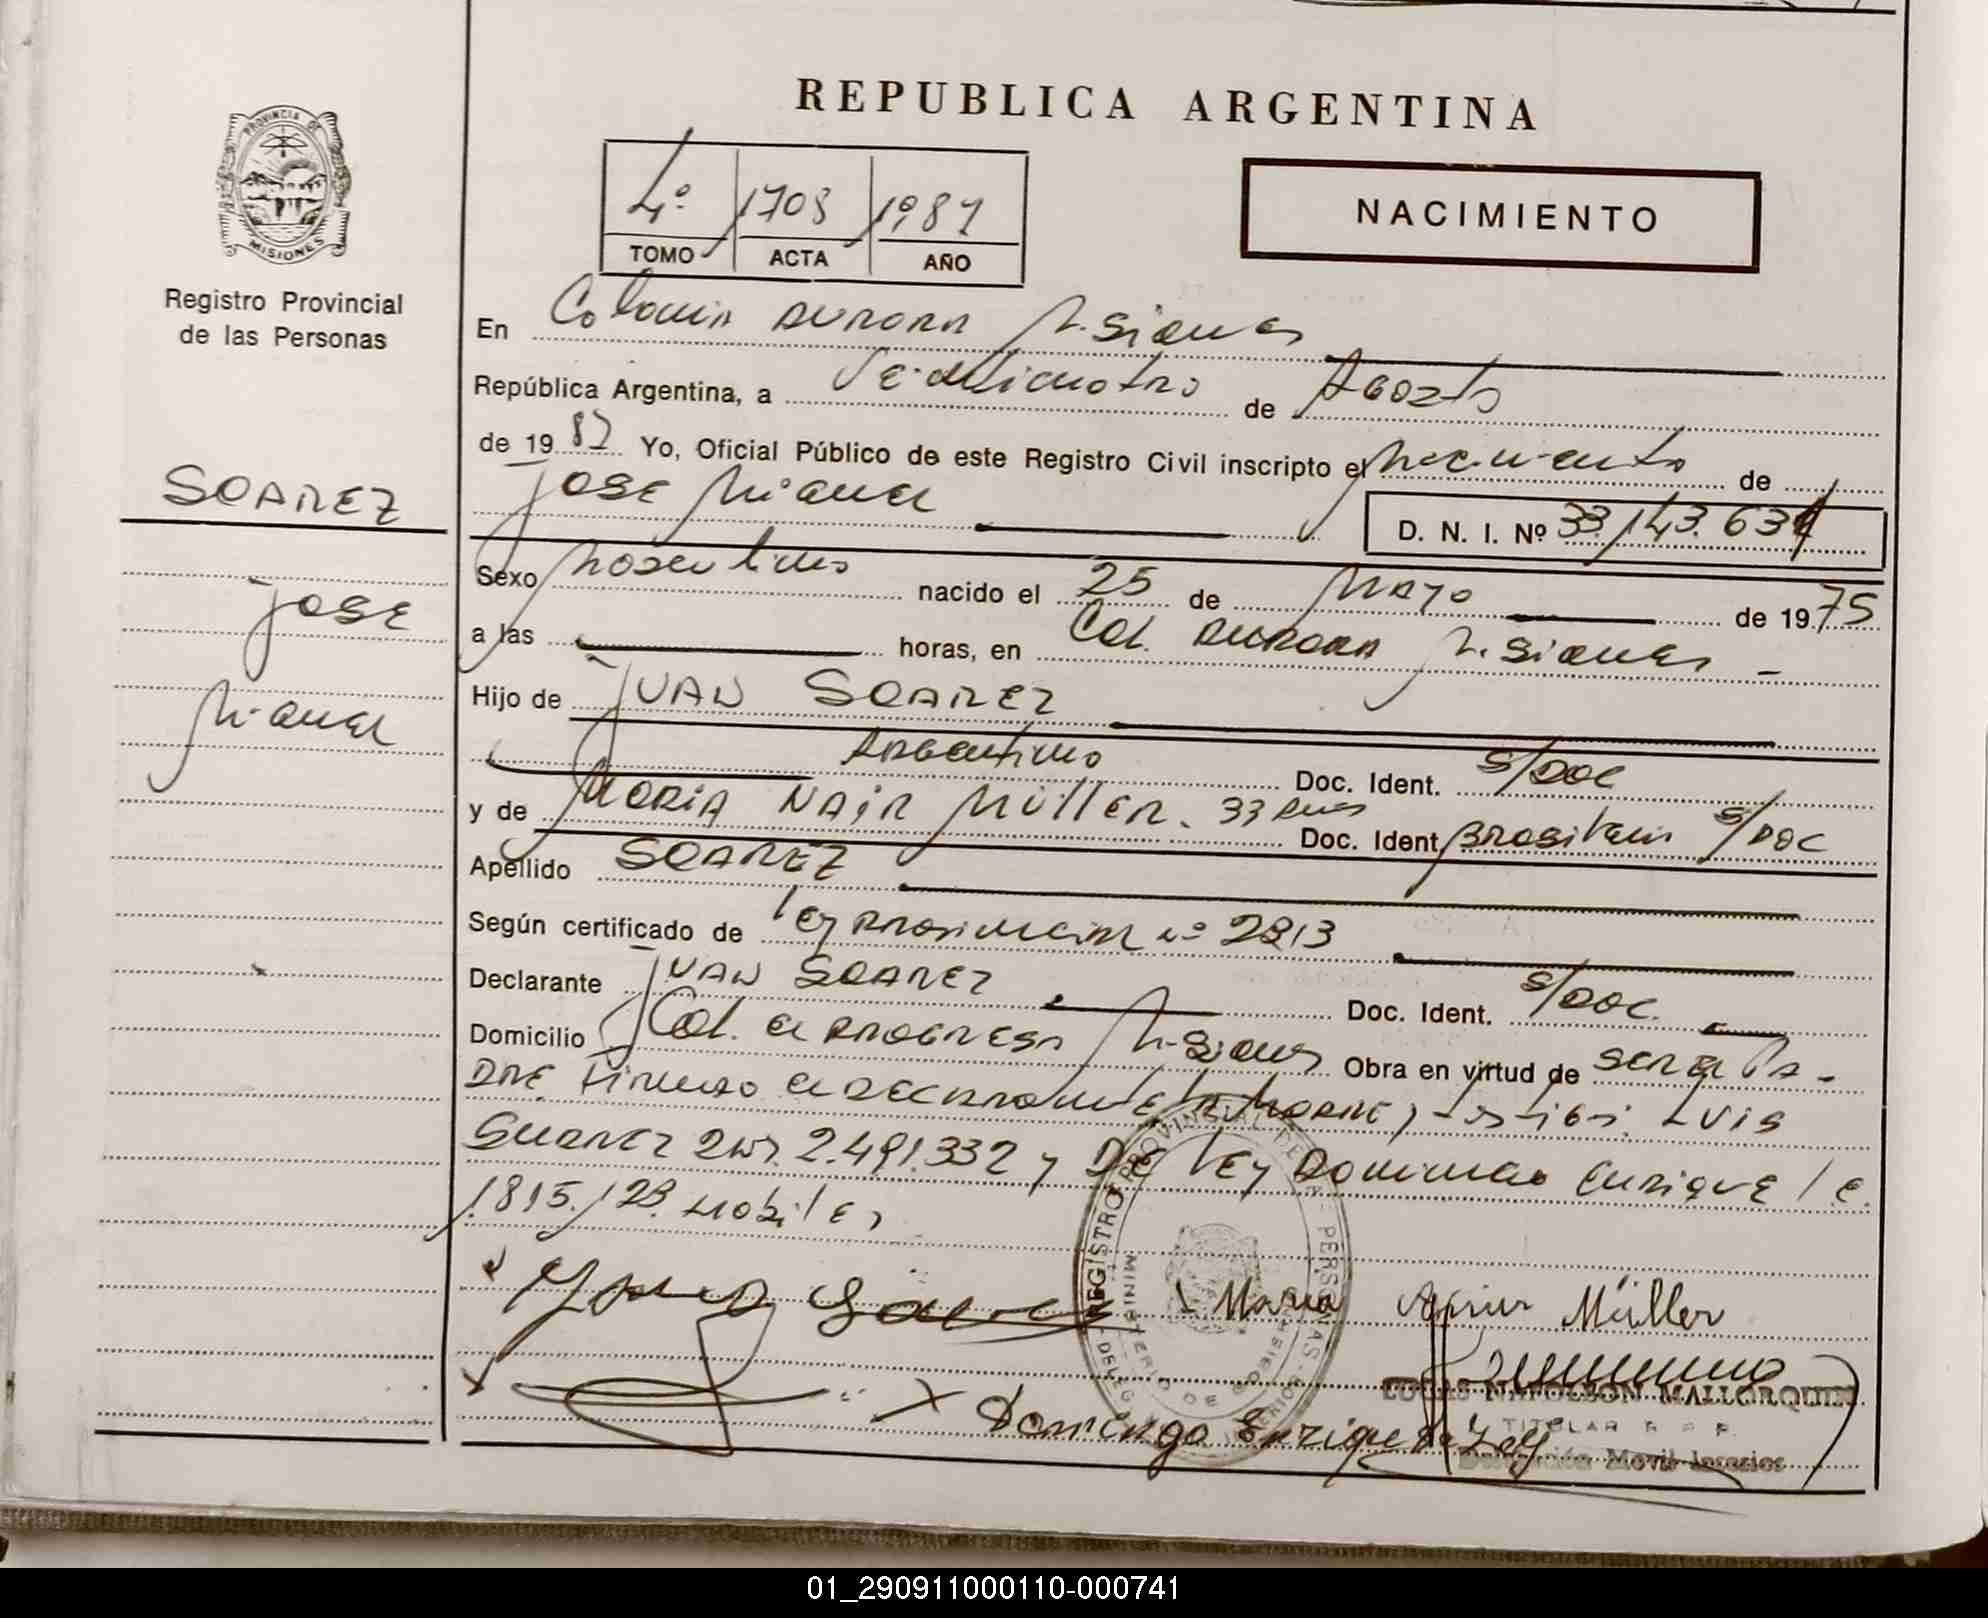 REPUBLICA ARGENTINA
PROVINCIA DE
MISIONES
Registro Provincial
de las Personas
4º 1703 1987
TOMO ACTA AÑO
NACIMIENTO
En Colonia Aurora Misiones
República Argentina, a Veinticuatro de Agosto
de 19 87 Yo, Oficial Público de este Registro Civil inscripto el Nacimiento de
SOAREZ
JOSE Miguel
D. N. I. Nº 33.143.634
Sexo Masculino nacido el 25 de Mayo de 19 75
JOSE
a las horas, en Col. Aurora Misiones -
Miguel
Hijo de JUAN SOAREZ
Argentino Doc. Ident. S/DOC
y de MARIA NAIR MÜLLER. 33 años Doc. Ident. Brasilera S/DOC
Apellido SOAREZ
Según certificado de Ley Provincial Nº 2813
Declarante JUAN SOAREZ Doc. Ident. S/DOC.
Domicilio Col. El Progreso Misiones Obra en virtud de ser el PA-
DRE Firman el declarante la Madre, testigos: LUIS
SUAREZ DNI. 2.491.332 y DE LEY Domingo Enrique
1.815.128 Habiles
Maria Müller
LUCAS NAPOLEON MALLORQUIN
TITULAR R P P
Domingo Enrique de Ley
Delegación Movil
REGISTRO PROVINCIAL DE PERSONAS
MINISTERIO DE GOBIERNO
01_290911000110-000741